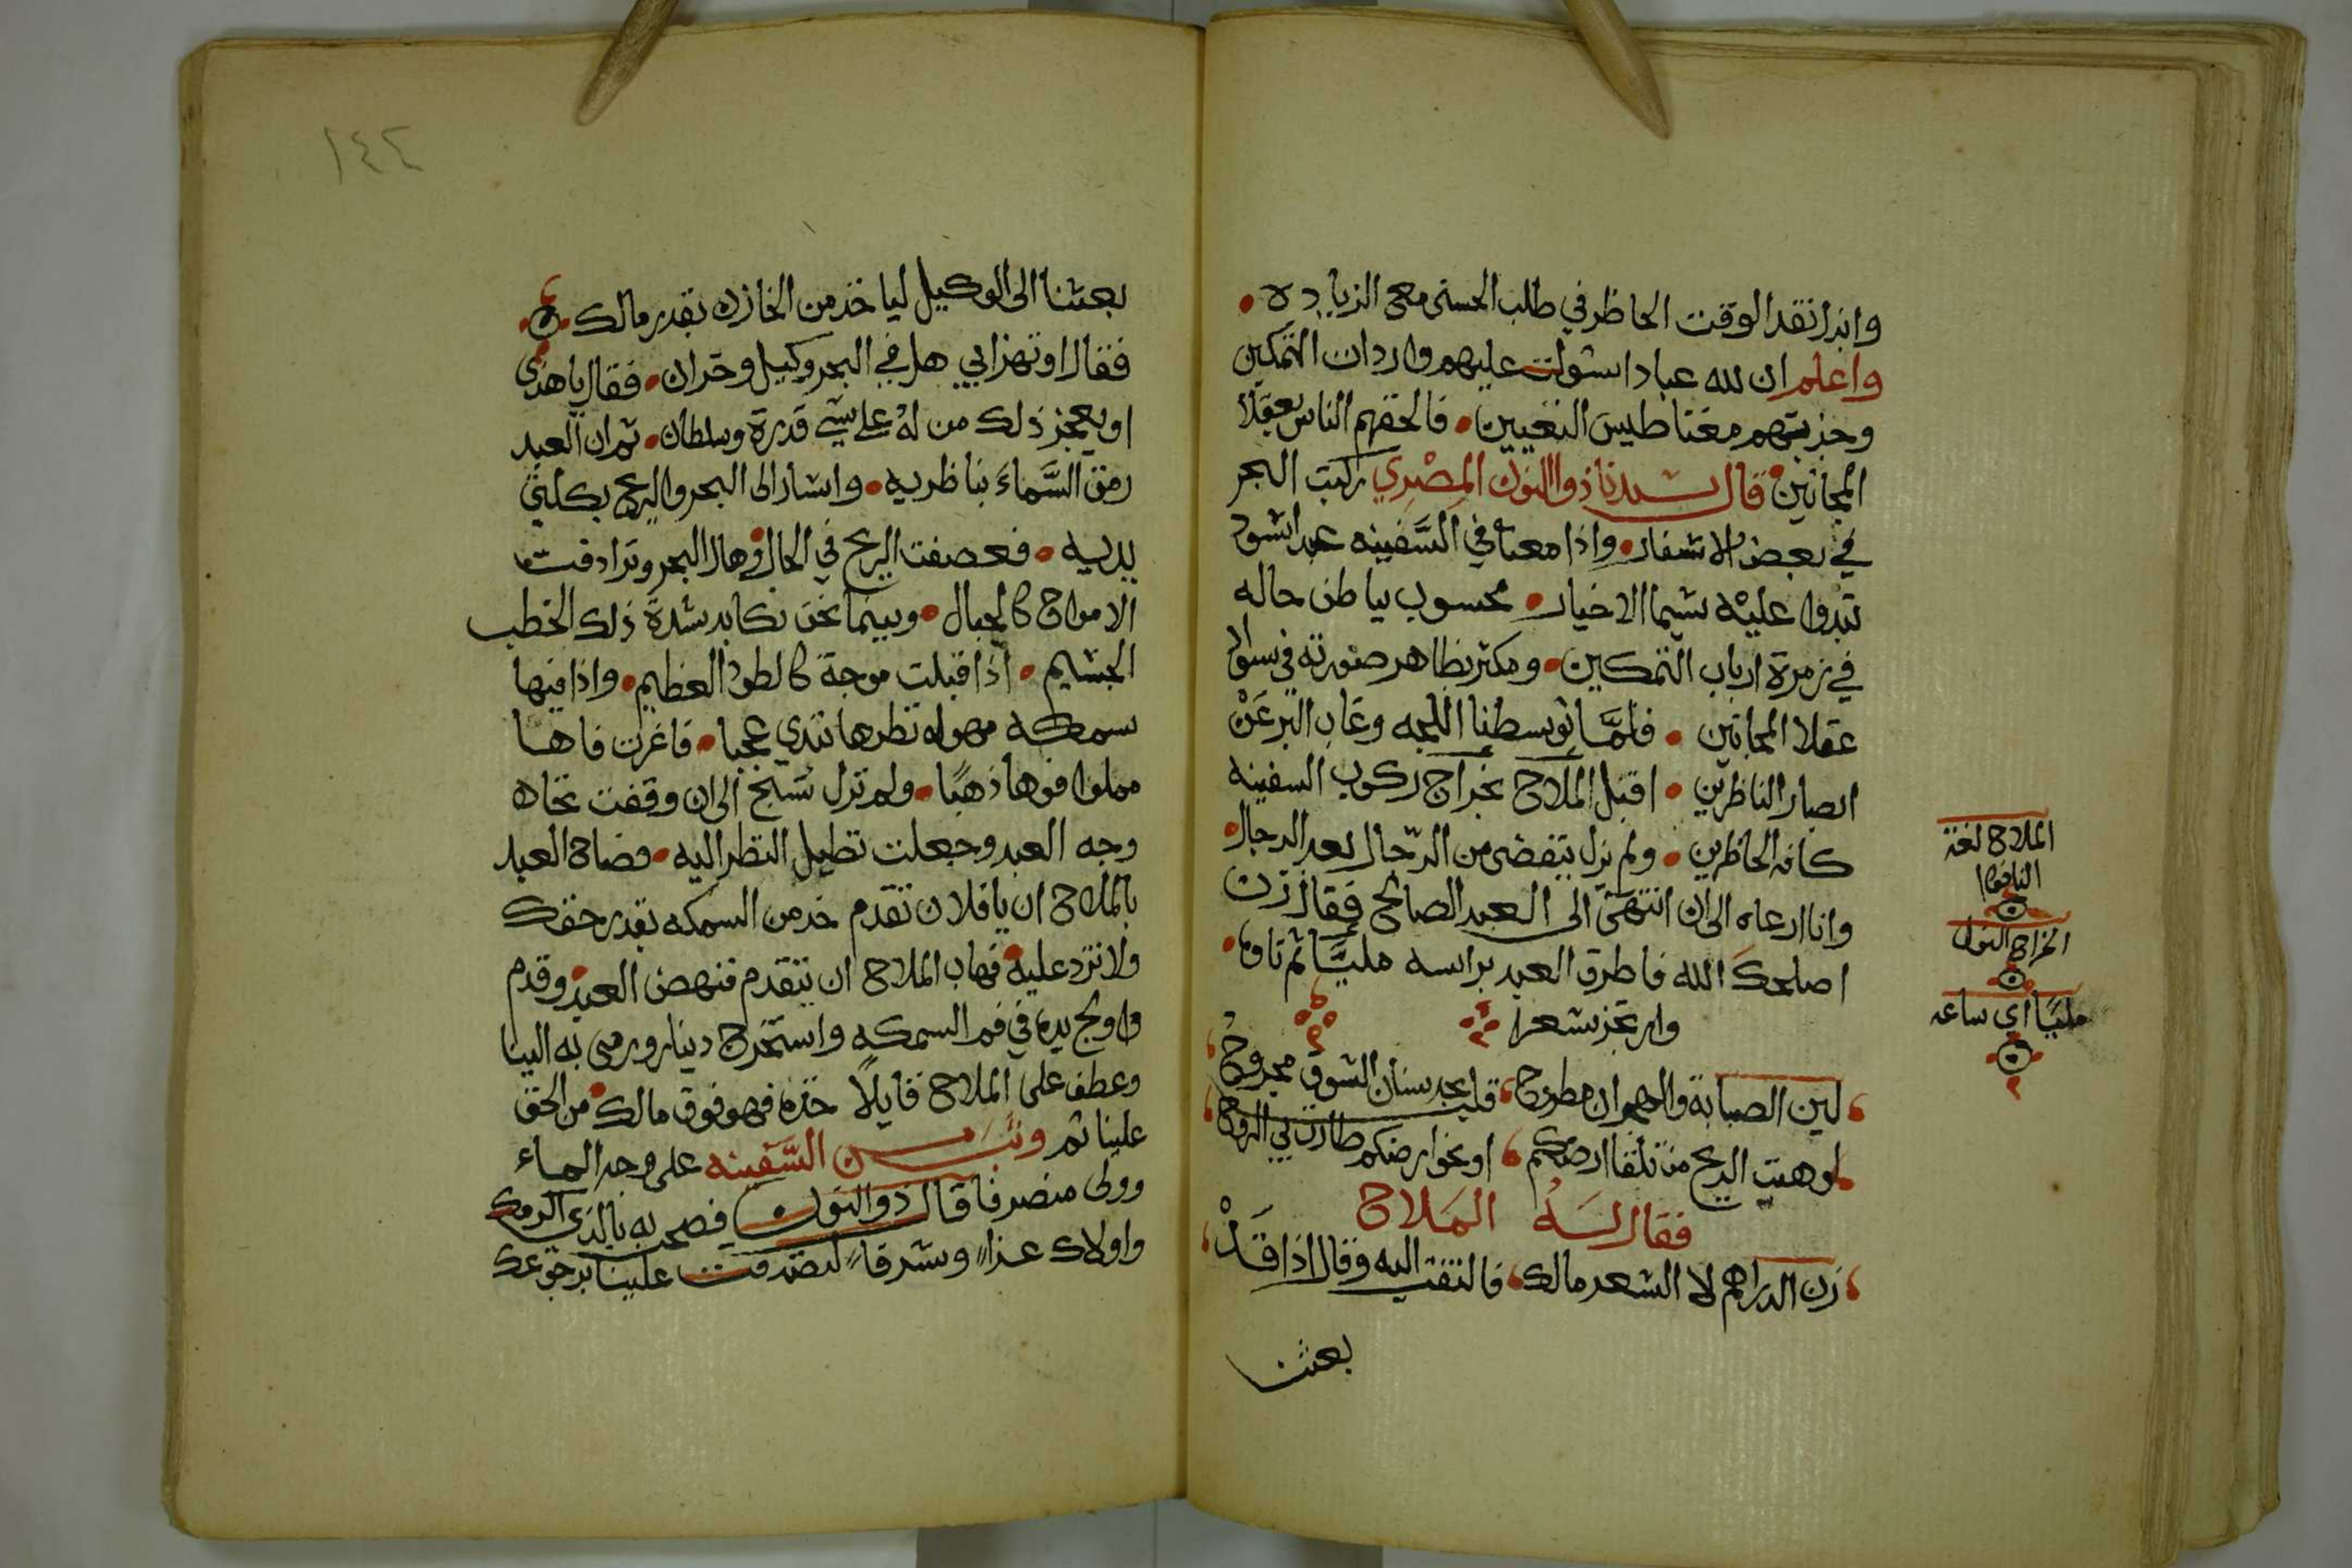 وابذر نقد الوقت الحاظر في طلب الحسنى مع الزياده
واعلم ان لله عبادا استولت عليهم واردات التمكين
وجذبتهم مغناطيس التعيين فالحقهم الناس بعقلا
المجانين قال سيدنا ذو النون المصري ركبت البحر
في بعض الاسفار واذا معنا في السفينه عبد اسود
تبدوا عليه سيما الاخيار محسوب بباطن حاله
في زمرة ارباب التمكين ومكثر بظاهر صورته في سواد
عقلا المجانين فلما توسطنا اللجه وغاب البر عن
ابصار الناظرين اقبل الملاح بخراج ركوب السفينه
كافه الحاظرين ولم يزل يتقضى من الرجال بعد الرجال
وانا ارعاه الى ان انتهى الى العبد الصالح فقال زن
اصلحك الله فاطرق العبد براسه مليا ثم تاوه
وارتجز شعرا
لين الصبابة والهجران مطروح قلب بحد سنان الشوق مجروح
لو هبت الريح من تلقا ارضكم او نحو ارضكم طارت بي الروح
فقال له الملاح
زن الدراهم لا الشعر مالك فالتفت اليه وقال اذا قد
بعثنا
الملاح لغة
الناخوذا
الخراج النول
مليا اي ساعه
١٤٢
بعثنا الى الوكيل لياخذ من الخازن بقدر مالك
فقال اوتهزا بي هل في البحر وكيل وخزان فقال يا هذى
او يعجز ذلك من له على شي قدرة وسلطان ثم ان العبد
رمق السماء بناظريه واشار الى البحر والريح بكلتى
يديه فعصفت الريح في الحال وهال البحر وترادفت
الامواج كالجبال وبينما نحن نكابد شدة ذلك الخطب
الجسيم اذا قبلت موجة كالطود العظيم واذا فيها
سمكه مهوله نظرها تبدي عجبا فاغرت فاها
مملوا فوها ذهبا ولم تزل تسبح الى ان وقفت تجاه
وجه العبد وجعلت تطيل النظر اليه فصاح العبد
بالملاح ان يا فلان تقدم خذ من السمكه بقدر حقك
ولا تزد عليه فهاب الملاح ان يتقدم فنهض العبد وقدم
واولج يده في فم السمكه واستخرج دينار ورمى به الينا
وعطف على الملاح قايلا خذه فهو فوق مالك من الحق
علينا ثم وثب من السفينه على وجه الماء
وولى منصرفا قال ذو النون فصحت به بالذي اكرمك
واولاك عزا وشرفا لتصدقت علينا برجوعك